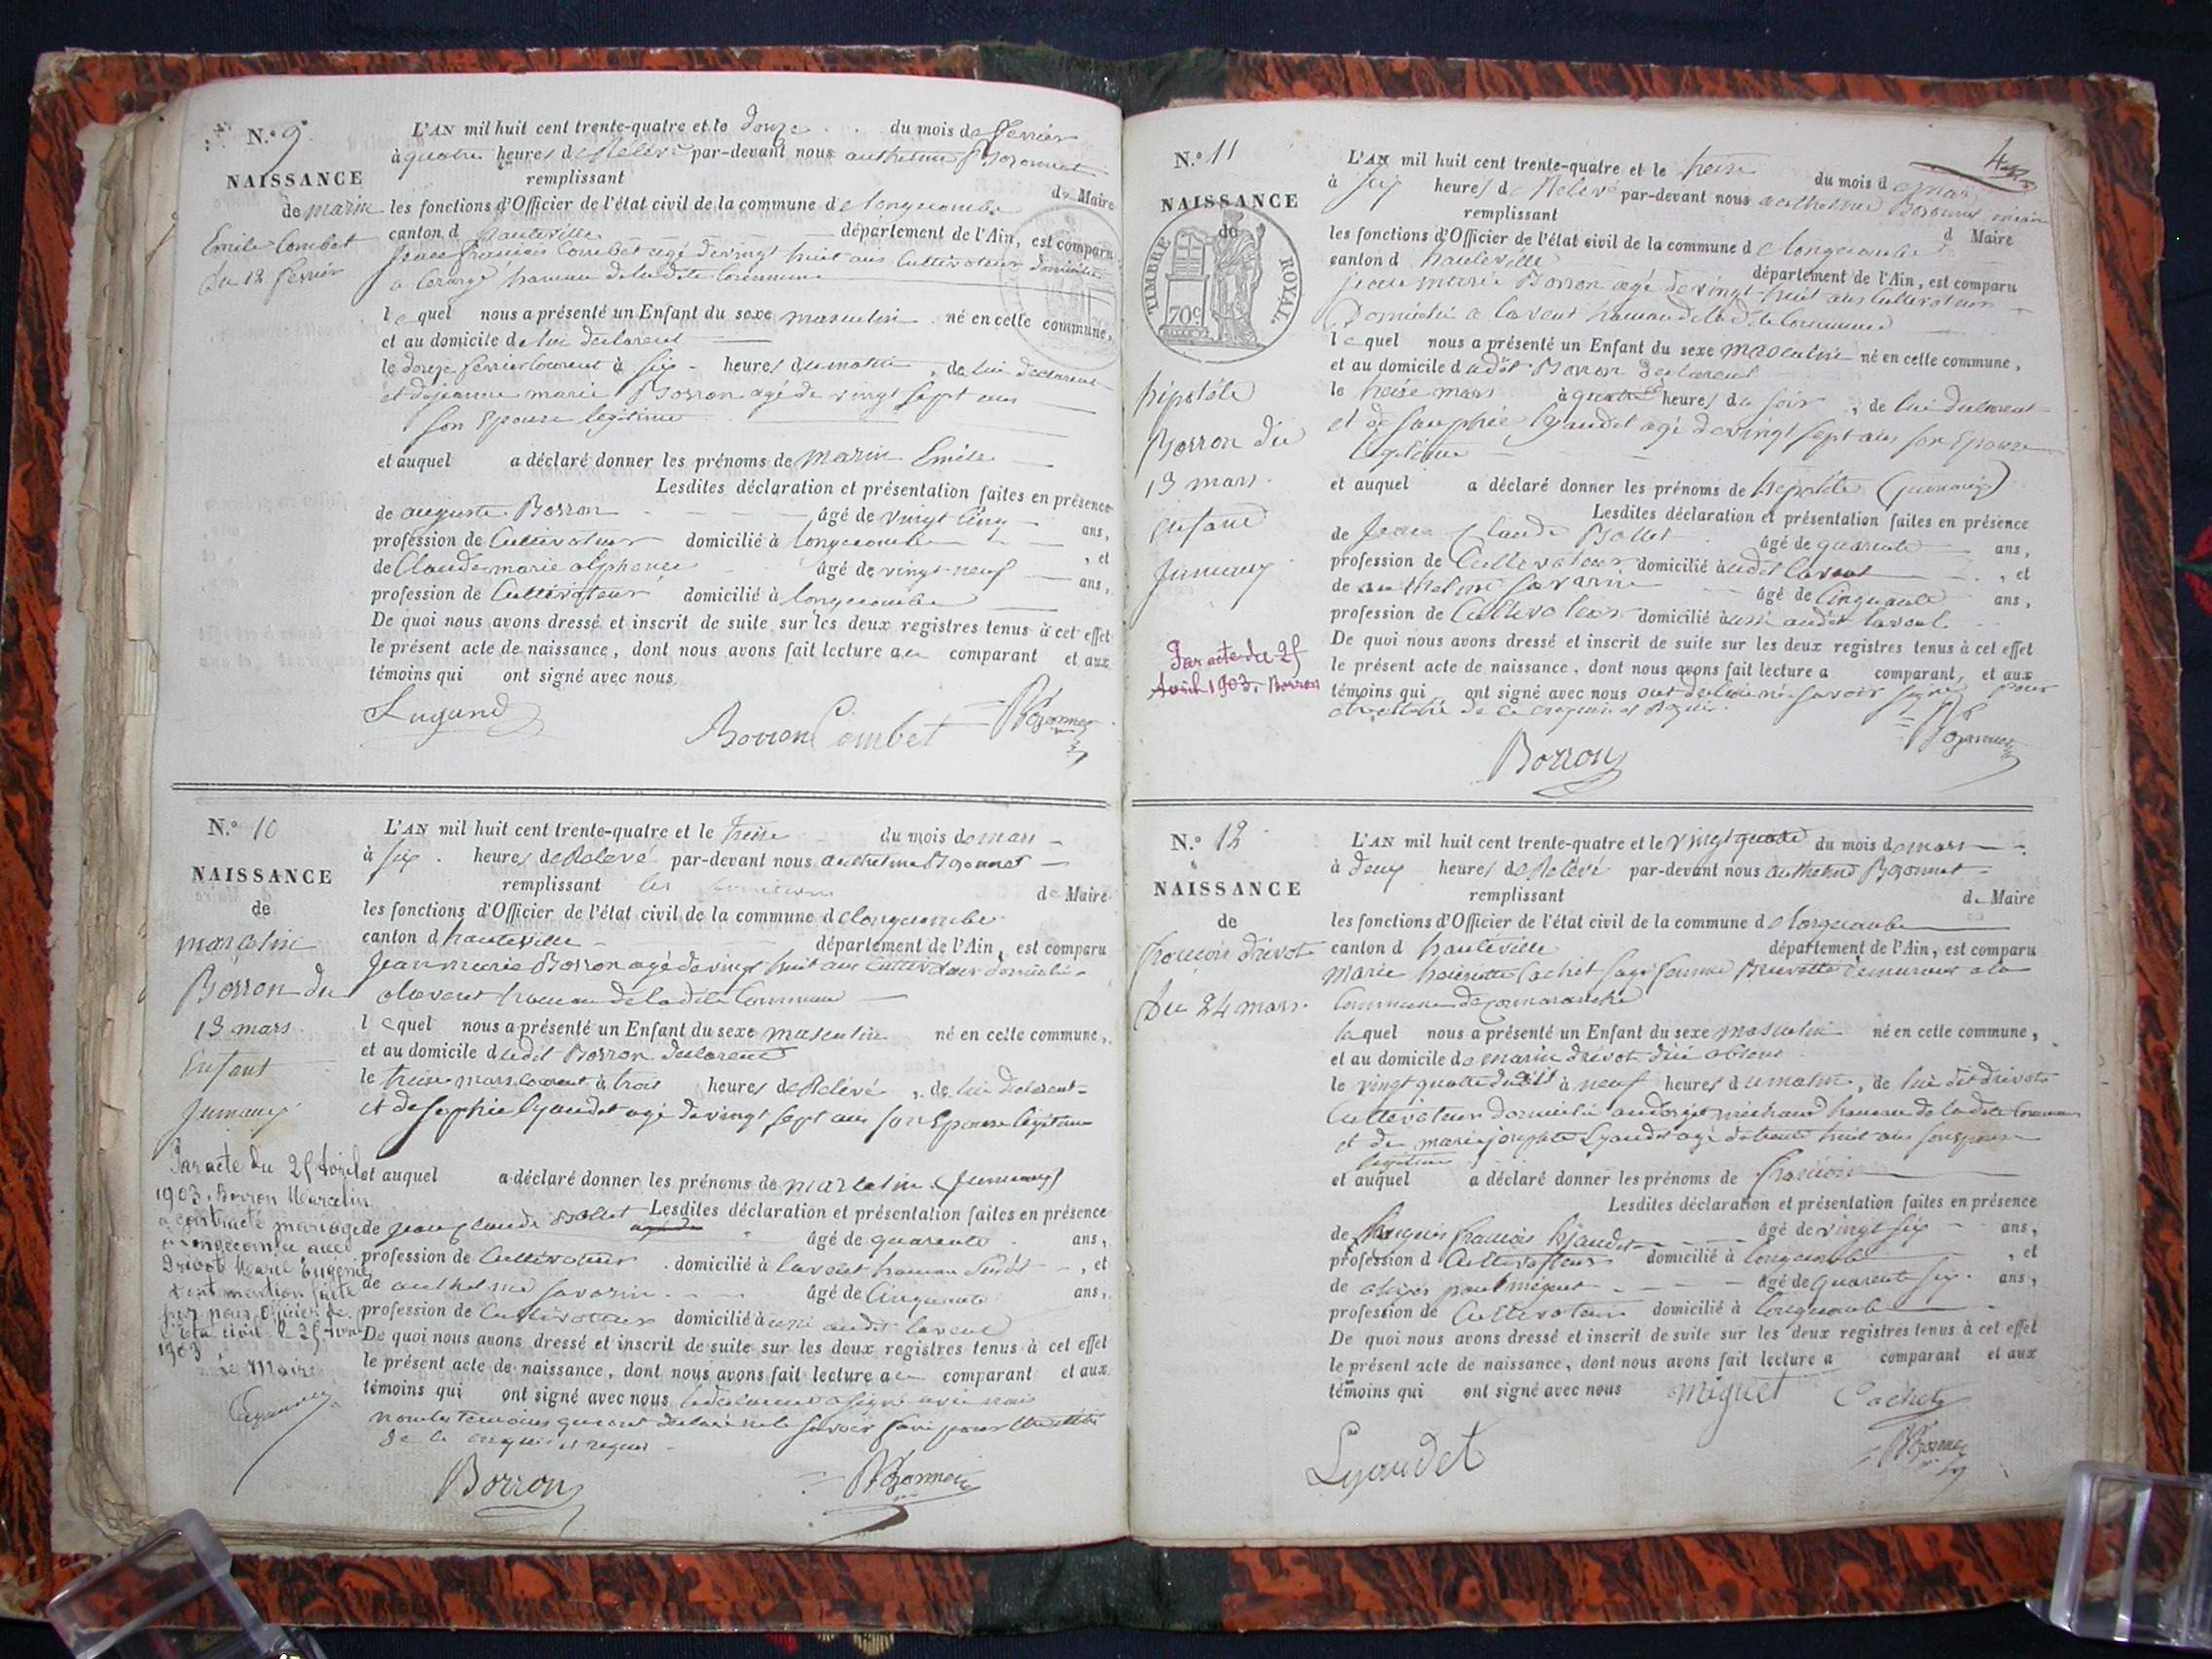 N.° 9
NAISSANCE
de marin
Emile Combet
du 12 fevrier
L'AN mil huit cent trente-quatre et le douze du mois de fevrier
à quatre heures de Relevé par-devant nous anthelme Bozonnet
remplissant
de Maire
les fonctions d'Officier de l'état civil de la commune de longecombe
canton d hauteville département de l'Ain, est comparu
Jean francois Combet agé de vingt huit ans Cultivateur domicilié
a hameau de la dite Commune
lequel nous a présenté un Enfant du sexe masculin né en cette commune,
et au domicile de lui declarent
le douze fevrier courent à six heures du matin, de lui declarent
et de jeanne marie Borron agé de vingt sept ans
son Epouse legitime
et auquel a déclaré donner les prénoms de marin Emile
Lesdites déclaration et présentation faites en présence
de auguste Borron âgé de vingt cinq ans,
profession de Cultivateur domicilié à longecombe, et
de Claude marie âgé de vingt-neuf ans,
profession de Cultivateur domicilié à longecombe
De quoi nous avons dressé et inscrit de suite sur les deux registres tenus à cet effet
le présent acte de naissance, dont nous avons fait lecture au comparant et aux
témoins qui ont signé avec nous
Borron Combet Bozonnet
N.° 10
NAISSANCE
de
marcelin
Borron du
13 mars
Enfant
Jumaux
Par acte du 25 Avril
1903, Borron Marcelin
a contracté mariage
à Longecombe avec
Drivot Marie Eugénie
dont mention faite
par nous Officier de
l'état civil le 25 Avril
1903
Le Maire
L'AN mil huit cent trente-quatre et le treise du mois de mars
à six heures de Relevé par-devant nous anthelme Bozonnet
remplissant les fonctions
de Maire
les fonctions d'Officier de l'état civil de la commune de longecombe
canton d hauteville département de l'Ain, est comparu
Jean marie Borron agé de vingt huit ans Cultivateur domicilié
a lavent hameau de la dite Commune
lequel nous a présenté un Enfant du sexe masculin né en cette commune,
et au domicile dudit Borron declarent
le treise mars courent à trois heures de Relevé, de lui declarent
et de Sophie lyaudet agé de vingt sept ans son Epouse legitime
et auquel a déclaré donner les prénoms de marcelin (Jumaux)
Lesdites déclaration et présentation faites en présence
de jean claude Bollet âgé de quarente ans,
profession de Cultivateur domicilié à lavent hameau susdit, et
de anthelme savarin âgé de Cinquante ans,
profession de Cultivateur domicilié aussi audit lavent
De quoi nous avons dressé et inscrit de suite sur les deux registres tenus à cet effet
le présent acte de naissance, dont nous avons fait lecture au comparant et aux
témoins qui ont signé avec nous le declarent a signé avec nous
non les temoins qui ont declaré ne le savoir
de ce enquis et requis
Borron Bozonnet
N.° 11
NAISSANCE
de
TIMBRE ROYAL.
70c
hipolite
Borron du
13 mars
enfant
Jumaux
Par acte du 25
Avril 1903. Borron
4
L'AN mil huit cent trente-quatre et le treise du mois de mars
à six heures de Relevé par-devant nous anthelme Bozonnet maire
remplissant
d Maire
les fonctions d'Officier de l'état civil de la commune de longecombe
canton d hauteville département de l'Ain, est comparu
jean marie Borron agé de vingt huit ans Cultivateur
Domicilié a lavent hameau de la dite Commune
lequel nous a présenté un Enfant du sexe masculin né en cette commune,
et au domicile dudit Borron declarent
le treise mars à quatre heures du soir, de lui declarent
et de Sauphie lyaudet agé de vingt sept ans son Epouse
legitime
et auquel a déclaré donner les prénoms de hipolite (jumaux)
Lesdites déclaration et présentation faites en présence
de Jean Claude Bollet âgé de quarente ans,
profession de Cultivateur domicilié audit lavent, et
de anthelme savarin âgé de Cinquante ans,
profession de Cultivateur domicilié aussi audit lavent
De quoi nous avons dressé et inscrit de suite sur les deux registres tenus à cet effet
le présent acte de naissance, dont nous avons fait lecture a comparant, et aux
témoins qui ont signé avec nous ont declaré ne savoir signé pour
de ce enquis et requis
Borron Bozonnet
N.° 12
NAISSANCE
de
francois drivot
du 24 mars
L'AN mil huit cent trente-quatre et le vingt quatre du mois de mars
à deux heures de Relévé par-devant nous anthelme Bozonnet
remplissant
de Maire
les fonctions d'Officier de l'état civil de la commune de longecombe
canton d hauteville département de l'Ain, est comparu
marie henriette Cachet sage femme Brevettée demeurant a la
Commune de cormaranche
laquel nous a présenté un Enfant du sexe masculin né en cette commune,
et au domicile de marin drivot absent
le vingt quatre dudit à neuf heures du matin, de lui dit drivot
Cultivateur domicilié hameau de la dite Commune
et de marie josephte Lyaudet agé de trente huit ans son epouse
legitime
et auquel a déclaré donner les prénoms de francois
Lesdites déclaration et présentation faites en présence
de francois lyaudet âgé de vingt six ans,
profession d Cultivateur domicilié à longecombe, et
de miguet âgé de quarente six ans,
profession de Cultivateur domicilié à longecombe
De quoi nous avons dressé et inscrit de suite sur les deux registres tenus à cet effet
le présent acte de naissance, dont nous avons fait lecture a comparant et aux
témoins qui ont signé avec nous miguet Cachet
Lyaudet Bozonnet